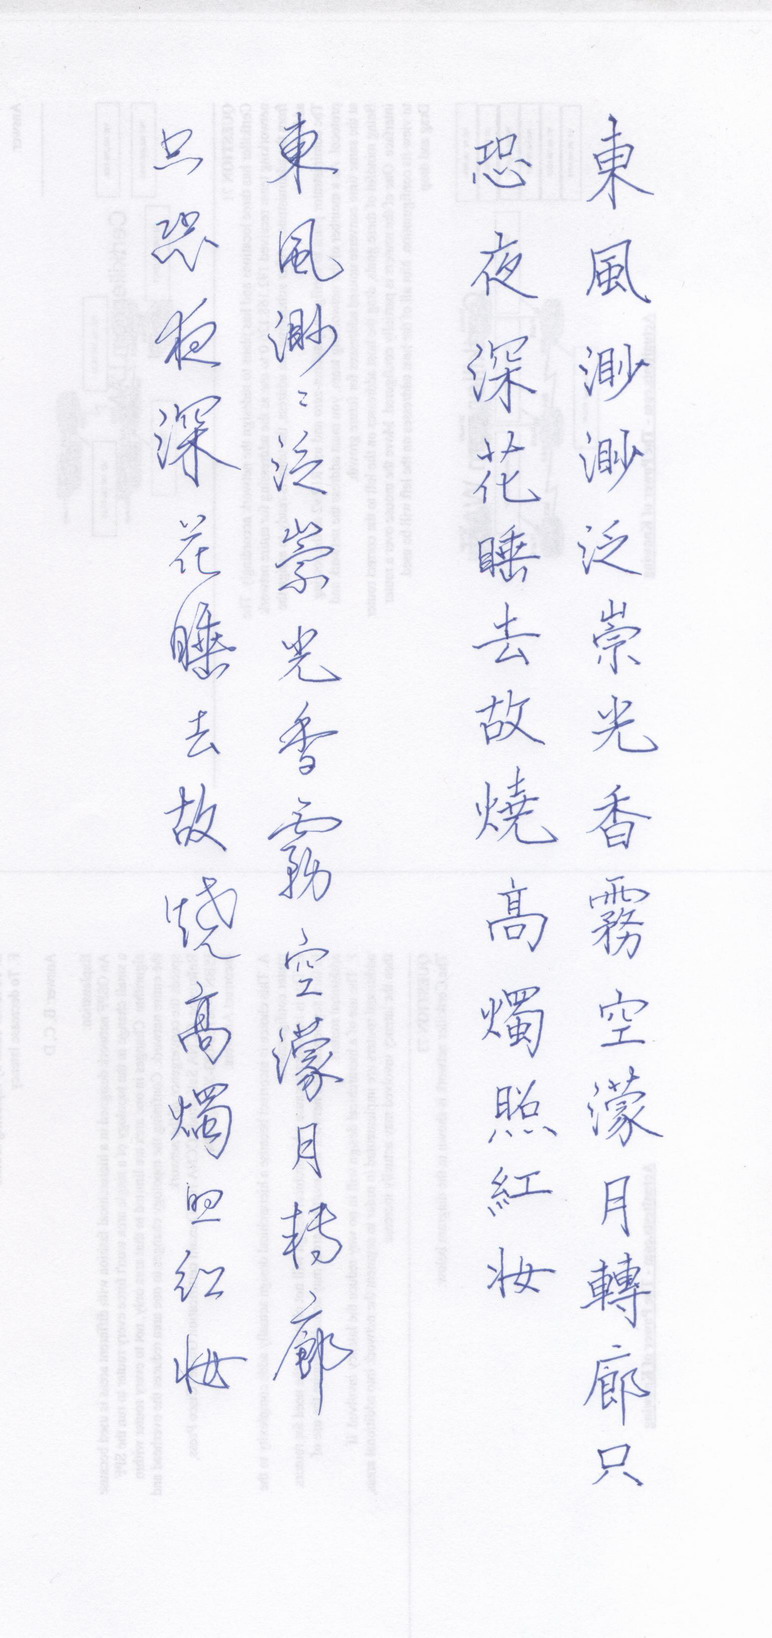 東風渺渺泛崇光香霧空濛月轉廊只
恐夜深花睡去故燒高燭照紅妝
東風渺〻泛崇光香霧空濛月轉廊
只恐夜深花睡去故燒高燭照紅妝